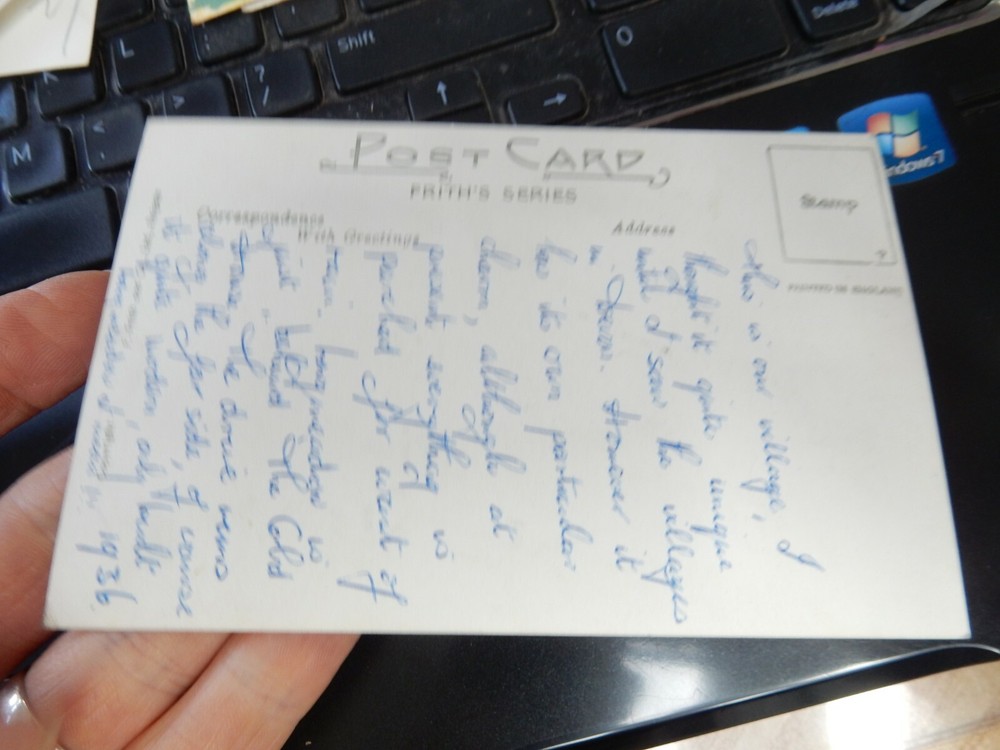 L
:
;
Shift
?
/
>
<
M
0
Delete
Windows 7
POST CARD
FRITH'S SERIES
Correspondence
With Greetings
Address
Stamp
PRINTED IN ENGLAND
this is our village, I
thought it quite unique
till I saw the villages
in Devon. However it
has its own particular
charm, although at
present everything is
parched for want of
rain. Longmeadow is
just behind the Club
House, the drive runs
along the far side, of course
it is quite modern, only built
1936